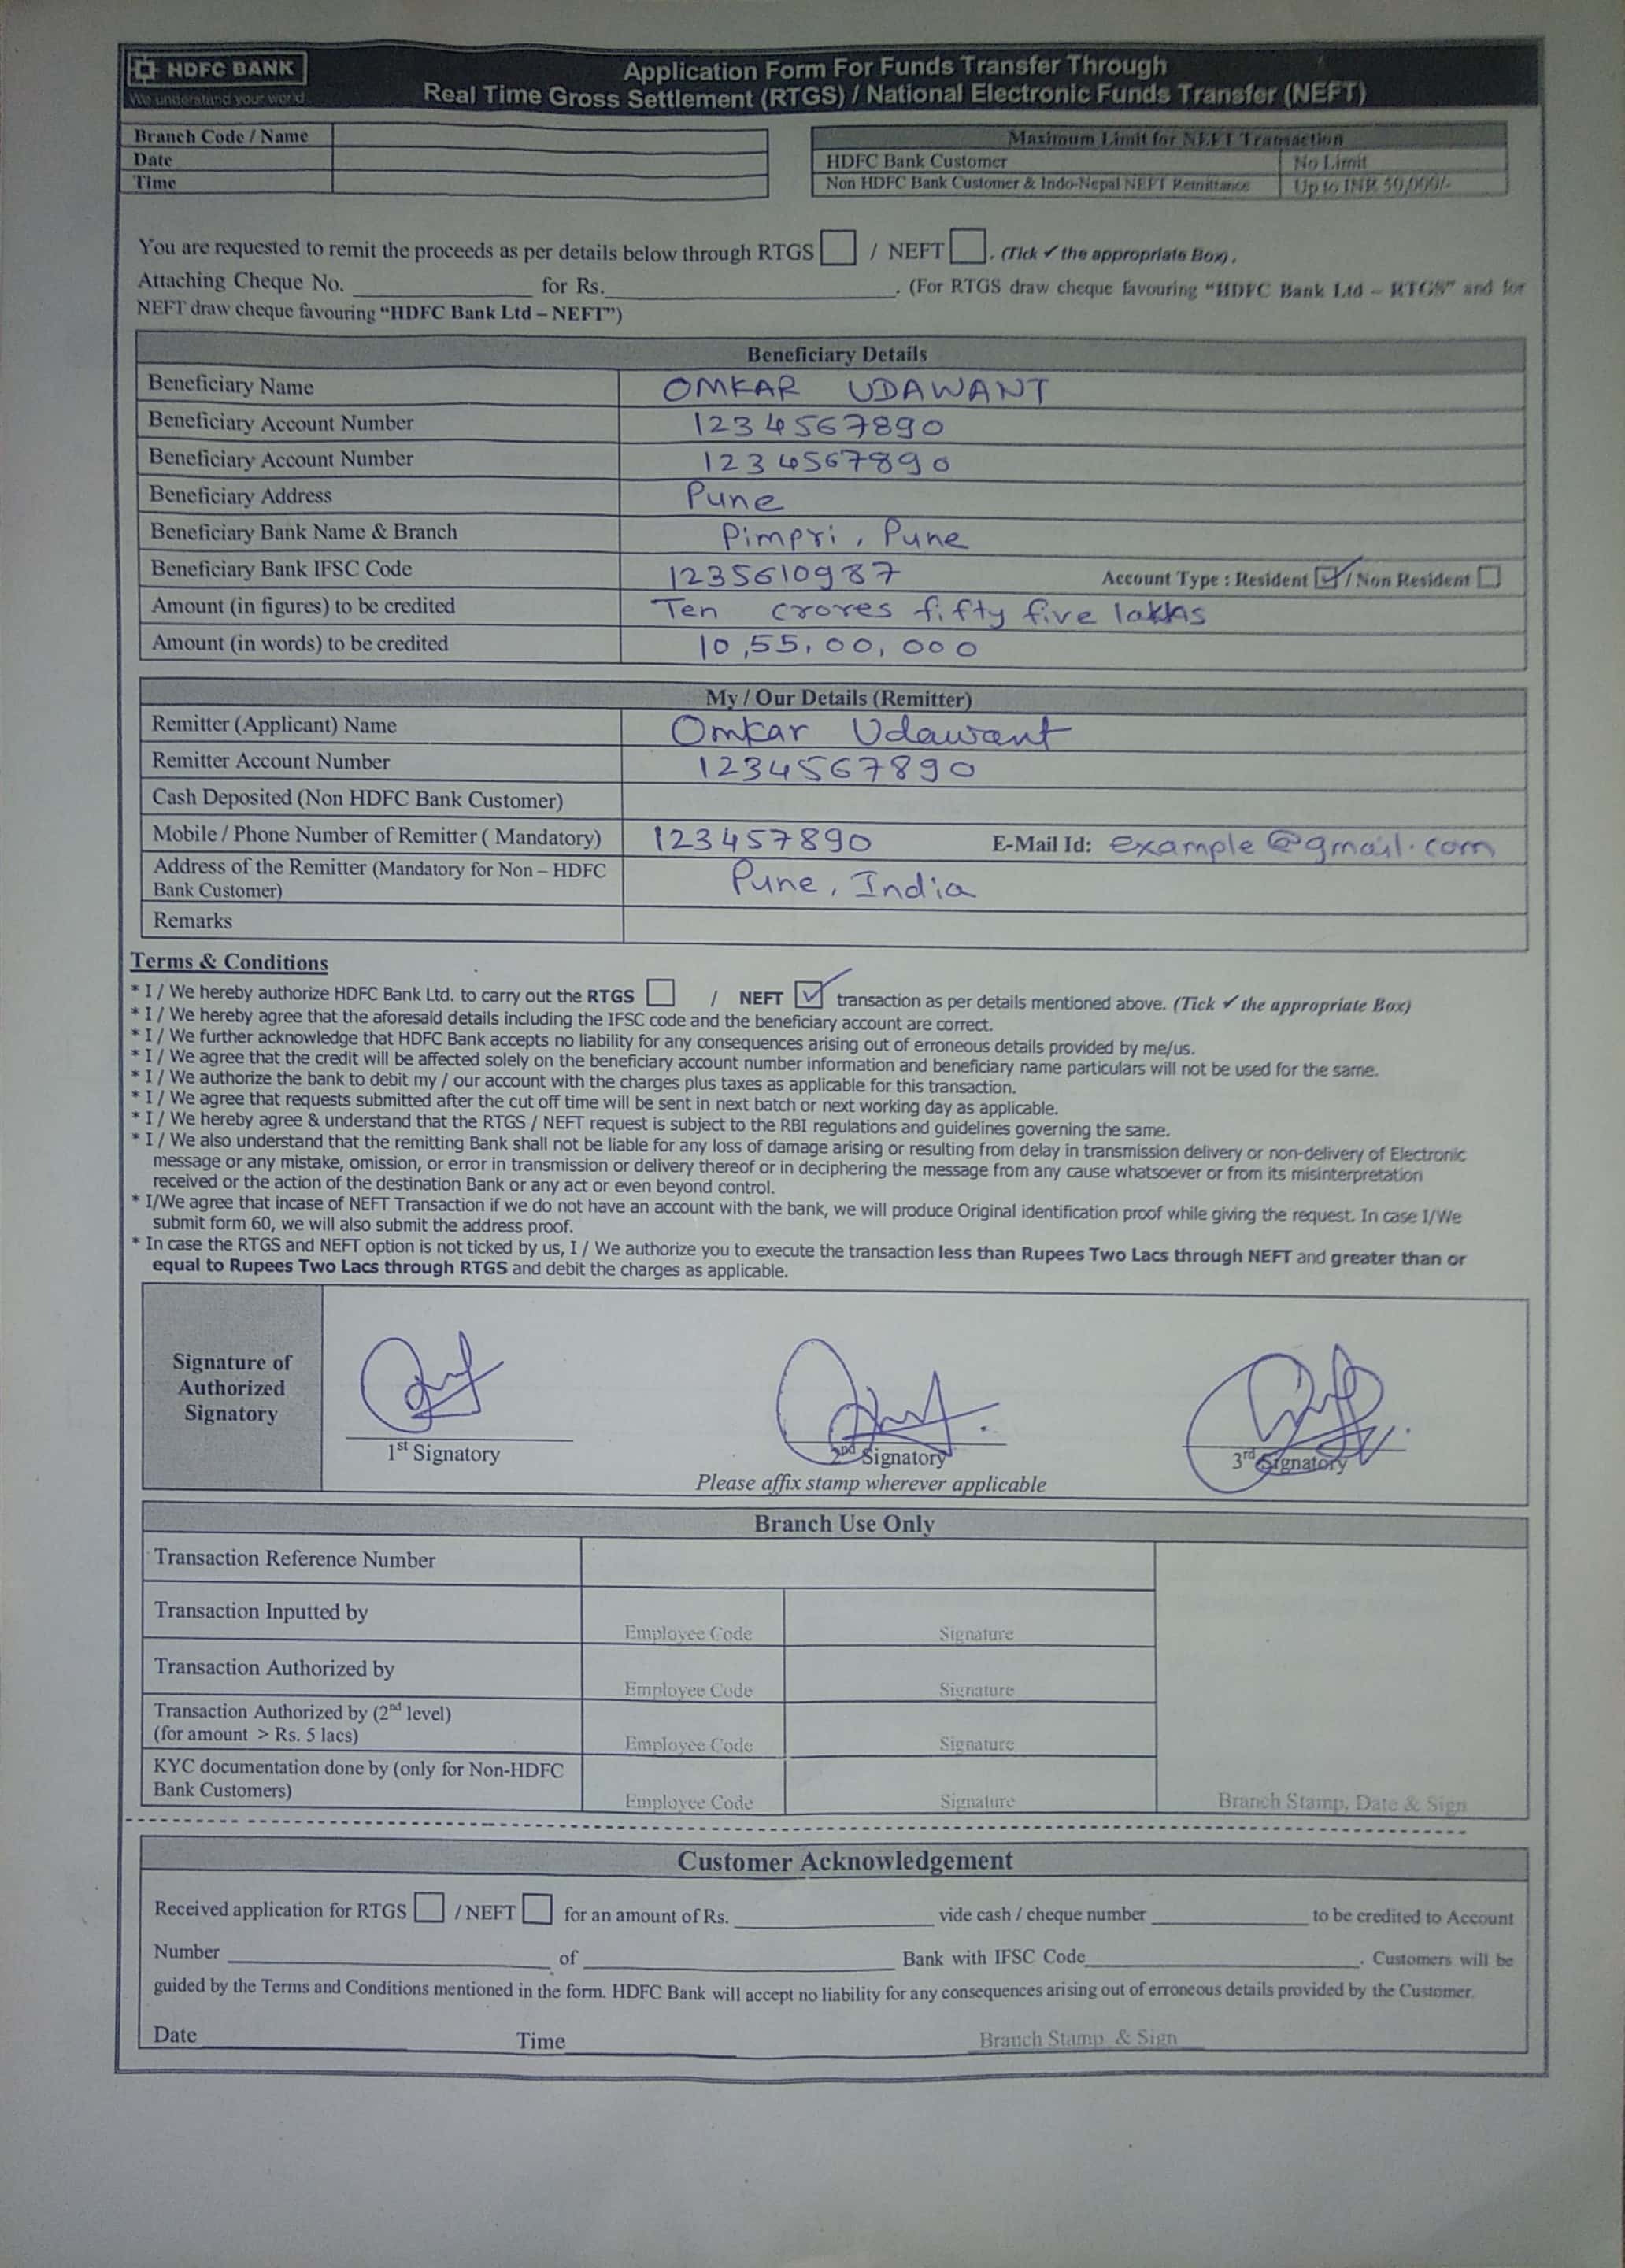 HDFC BANK
We understand your world
Application Form For Funds Transfer Through
Real Time Gross Settlement (RTGS) / National Electronic Funds Transfer (NEFT)
Branch Code / Name
Date
Time
Maximum Limit for NEFT Transaction
HDFC Bank Customer No Limit
Non HDFC Bank Customer & Indo-Nepal NEFT Remittance Up to INR 50,000/-
You are requested to remit the proceeds as per details below through RTGS ☐ / NEFT ☐ . (Tick ✓ the appropriate Box) .
Attaching Cheque No. __________ for Rs. __________ . (For RTGS draw cheque favouring “HDFC Bank Ltd – RTGS” and for
NEFT draw cheque favouring “HDFC Bank Ltd – NEFT”)
Beneficiary Details
Beneficiary Name OMKAR UDAWANT
Beneficiary Account Number 1234567890
Beneficiary Account Number 1234567890
Beneficiary Address Pune
Beneficiary Bank Name & Branch Pimpri, Pune
Beneficiary Bank IFSC Code 1235610987 Account Type : Resident ☑ / Non Resident ☐
Amount (in figures) to be credited Ten crores fifty five lakhs
Amount (in words) to be credited 10,55,00,000
My / Our Details (Remitter)
Remitter (Applicant) Name Omkar Udawant
Remitter Account Number 1234567890
Cash Deposited (Non HDFC Bank Customer)
Mobile / Phone Number of Remitter ( Mandatory) 123457890 E-Mail Id: example@gmail.com
Address of the Remitter (Mandatory for Non – HDFC Pune, India
Bank Customer)
Remarks
Terms & Conditions
* I / We hereby authorize HDFC Bank Ltd. to carry out the RTGS ☐ / NEFT ☑ transaction as per details mentioned above. (Tick ✓ the appropriate Box)
* I / We hereby agree that the aforesaid details including the IFSC code and the beneficiary account are correct.
* I / We further acknowledge that HDFC Bank accepts no liability for any consequences arising out of erroneous details provided by me/us.
* I / We agree that the credit will be affected solely on the beneficiary account number information and beneficiary name particulars will not be used for the same.
* I / We authorize the bank to debit my / our account with the charges plus taxes as applicable for this transaction.
* I / We agree that requests submitted after the cut off time will be sent in next batch or next working day as applicable.
* I / We hereby agree & understand that the RTGS / NEFT request is subject to the RBI regulations and guidelines governing the same.
* I / We also understand that the remitting Bank shall not be liable for any loss of damage arising or resulting from delay in transmission delivery or non-delivery of Electronic
message or any mistake, omission, or error in transmission or delivery thereof or in deciphering the message from any cause whatsoever or from its misinterpretation
received or the action of the destination Bank or any act or even beyond control.
* I/We agree that incase of NEFT Transaction if we do not have an account with the bank, we will produce Original identification proof while giving the request. In case I/We
submit form 60, we will also submit the address proof.
* In case the RTGS and NEFT option is not ticked by us, I / We authorize you to execute the transaction less than Rupees Two Lacs through NEFT and greater than or
equal to Rupees Two Lacs through RTGS and debit the charges as applicable.
Signature of
Authorized
Signatory
1st Signatory 2nd Signatory 3rd Signatory
Please affix stamp wherever applicable
Branch Use Only
Transaction Reference Number
Transaction Inputted by
Employee Code Signature
Transaction Authorized by
Employee Code Signature
Transaction Authorized by (2nd level)
(for amount > Rs. 5 lacs)
Employee Code Signature
KYC documentation done by (only for Non-HDFC
Bank Customers)
Employee Code Signature Branch Stamp, Date & Sign
Customer Acknowledgement
Received application for RTGS ☐ / NEFT ☐ for an amount of Rs. __________ vide cash / cheque number __________ to be credited to Account
Number __________ of __________ Bank with IFSC Code __________ . Customers will be
guided by the Terms and Conditions mentioned in the form. HDFC Bank will accept no liability for any consequences arising out of erroneous details provided by the Customer.
Date __________ Time __________ Branch Stamp & Sign